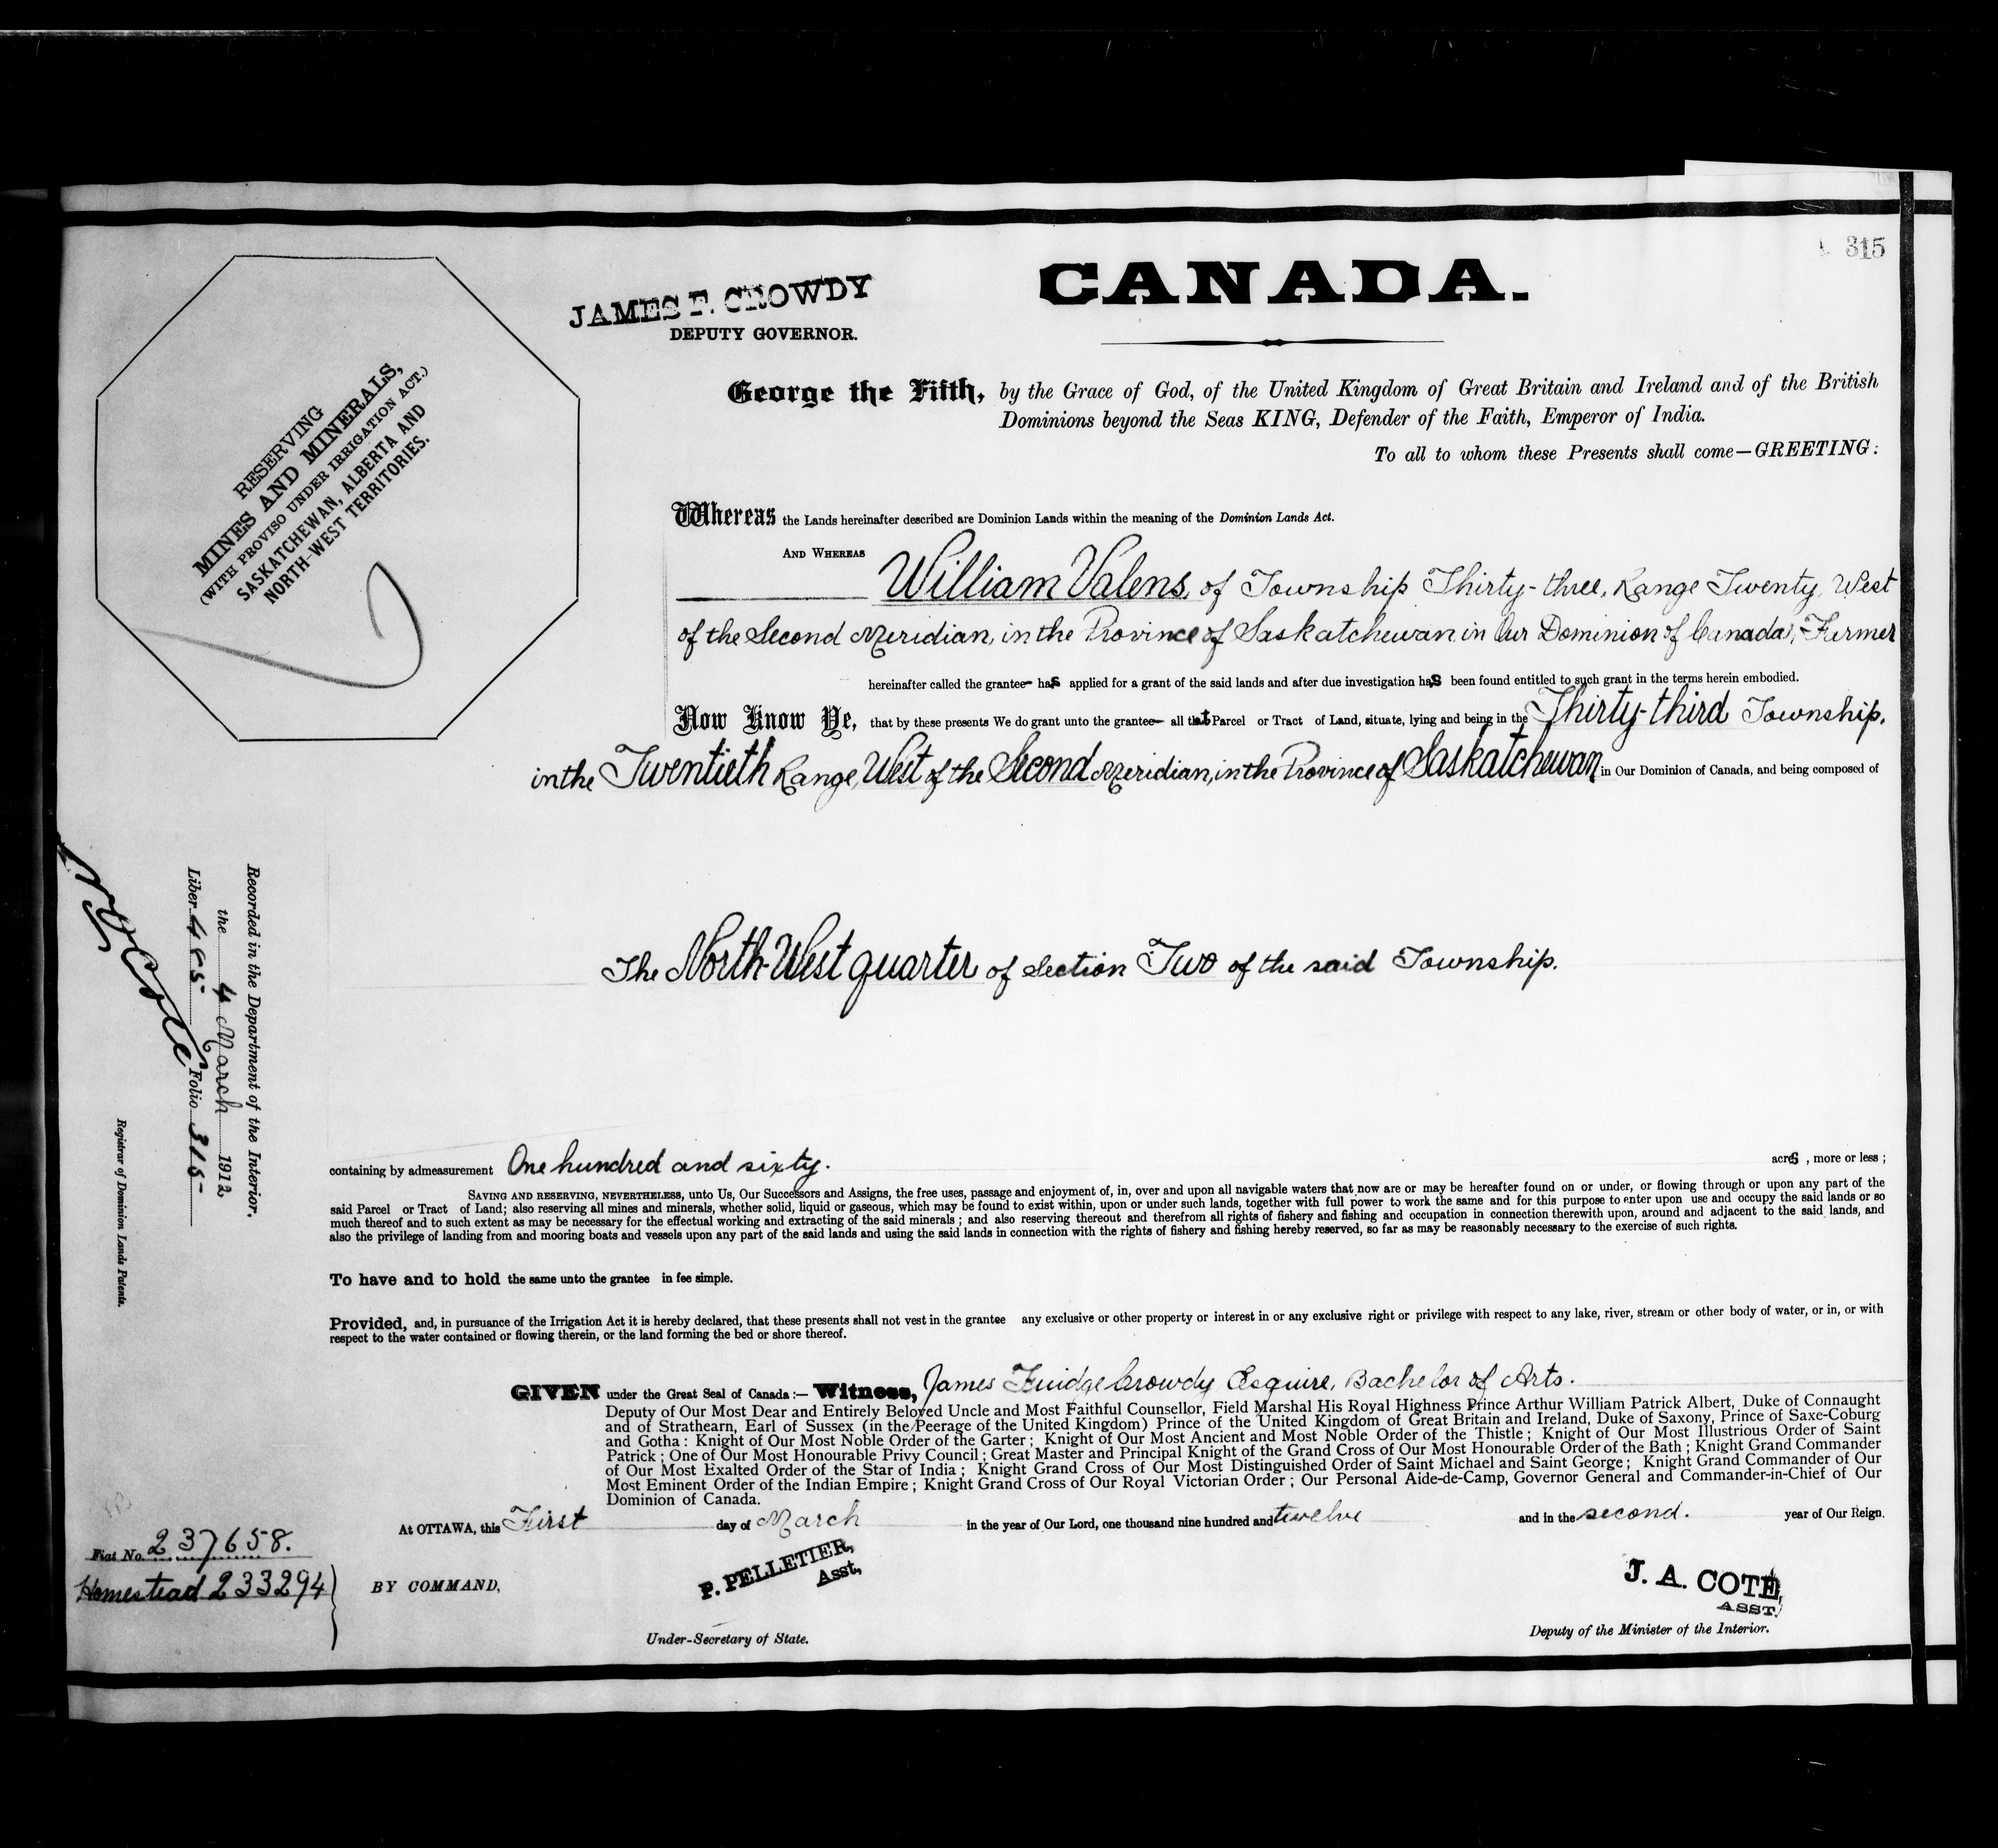 315
JAMES F. CROWDY
DEPUTY GOVERNOR.
CANADA.
RESERVING
MINES AND MINERALS,
(WITH PROVISO UNDER IRRIGATION ACT.)
SASKATCHEWAN, ALBERTA AND
NORTH-WEST TERRITORIES.
George the Fifth, by the Grace of God, of the United Kingdom of Great Britain and Ireland and of the British
Dominions beyond the Seas KING, Defender of the Faith, Emperor of India.
To all to whom these Presents shall come—GREETING:
Whereas the Lands hereinafter described are Dominion Lands within the meaning of the Dominion Lands Act.
AND WHEREAS
William Valens, of Township Thirty-three, Range Twenty, West
of the Second Meridian, in the Province of Saskatchewan in Our Dominion of Canada, Farmer
hereinafter called the grantee has applied for a grant of the said lands and after due investigation has been found entitled to such grant in the terms herein embodied.
Now Know Ye, that by these presents We do grant unto the grantee all that Parcel or Tract of Land, situate, lying and being in the Thirty-third Township,
in the Twentieth Range, West of the Second Meridian, in the Province of Saskatchewan in Our Dominion of Canada, and being composed of
The North-West quarter of Section Two of the said Township.
Recorded in the Department of the Interior.
the 4 March 1912
Liber 455 Folio 315
N O Coté
Registrar of Dominion Lands Patents.
containing by admeasurement One hundred and sixty. acres, more or less ;
SAVING AND RESERVING, NEVERTHELESS, unto Us, Our Successors and Assigns, the free uses, passage and enjoyment of, in, over and upon all navigable waters that now are or may be hereafter found on or under, or flowing through or upon any part of the
said Parcel or Tract of Land; also reserving all mines and minerals, whether solid, liquid or gaseous, which may be found to exist within, upon or under such lands, together with full power to work the same and for this purpose to enter upon use and occupy the said lands or so
much thereof and to such extent as may be necessary for the effectual working and extracting of the said minerals ; and also reserving thereout and therefrom all rights of fishery and fishing and occupation in connection therewith upon, around and adjacent to the said lands, and
also the privilege of landing from and mooring boats and vessels upon any part of the said lands and using the said lands in connection with the rights of fishery and fishing hereby reserved, so far as may be reasonably necessary to the exercise of such rights.
To have and to hold the same unto the grantee in fee simple.
Provided, and, in pursuance of the Irrigation Act it is hereby declared, that these presents shall not vest in the grantee any exclusive or other property or interest in or any exclusive right or privilege with respect to any lake, river, stream or other body of water, or in, or with
respect to the water contained or flowing therein, or the land forming the bed or shore thereof.
GIVEN under the Great Seal of Canada :— Witness, James Fuidge Crowdy Esquire, Bachelor of Arts.
Deputy of Our Most Dear and Entirely Beloved Uncle and Most Faithful Counsellor, Field Marshal His Royal Highness Prince Arthur William Patrick Albert, Duke of Connaught
and of Strathearn, Earl of Sussex (in the Peerage of the United Kingdom) Prince of the United Kingdom of Great Britain and Ireland, Duke of Saxony, Prince of Saxe-Coburg
and Gotha : Knight of Our Most Noble Order of the Garter ; Knight of Our Most Ancient and Most Noble Order of the Thistle ; Knight of Our Most Illustrious Order of Saint
Patrick ; One of Our Most Honourable Privy Council ; Great Master and Principal Knight of the Grand Cross of Our Most Honourable Order of the Bath ; Knight Grand Commander
of Our Most Exalted Order of the Star of India ; Knight Grand Cross of Our Most Distinguished Order of Saint Michael and Saint George ; Knight Grand Commander of Our
Most Eminent Order of the Indian Empire ; Knight Grand Cross of Our Royal Victorian Order ; Our Personal Aide-de-Camp, Governor General and Commander-in-Chief of Our
Dominion of Canada.
At OTTAWA, this First day of March in the year of Our Lord, one thousand nine hundred and twelve and in the second. year of Our Reign.
Fiat No. 237658.
Homestead 233294
BY COMMAND,
P. PELLETIER,
Asst,
Under-Secretary of State.
J. A. COTE,
ASST.
Deputy of the Minister of the Interior.